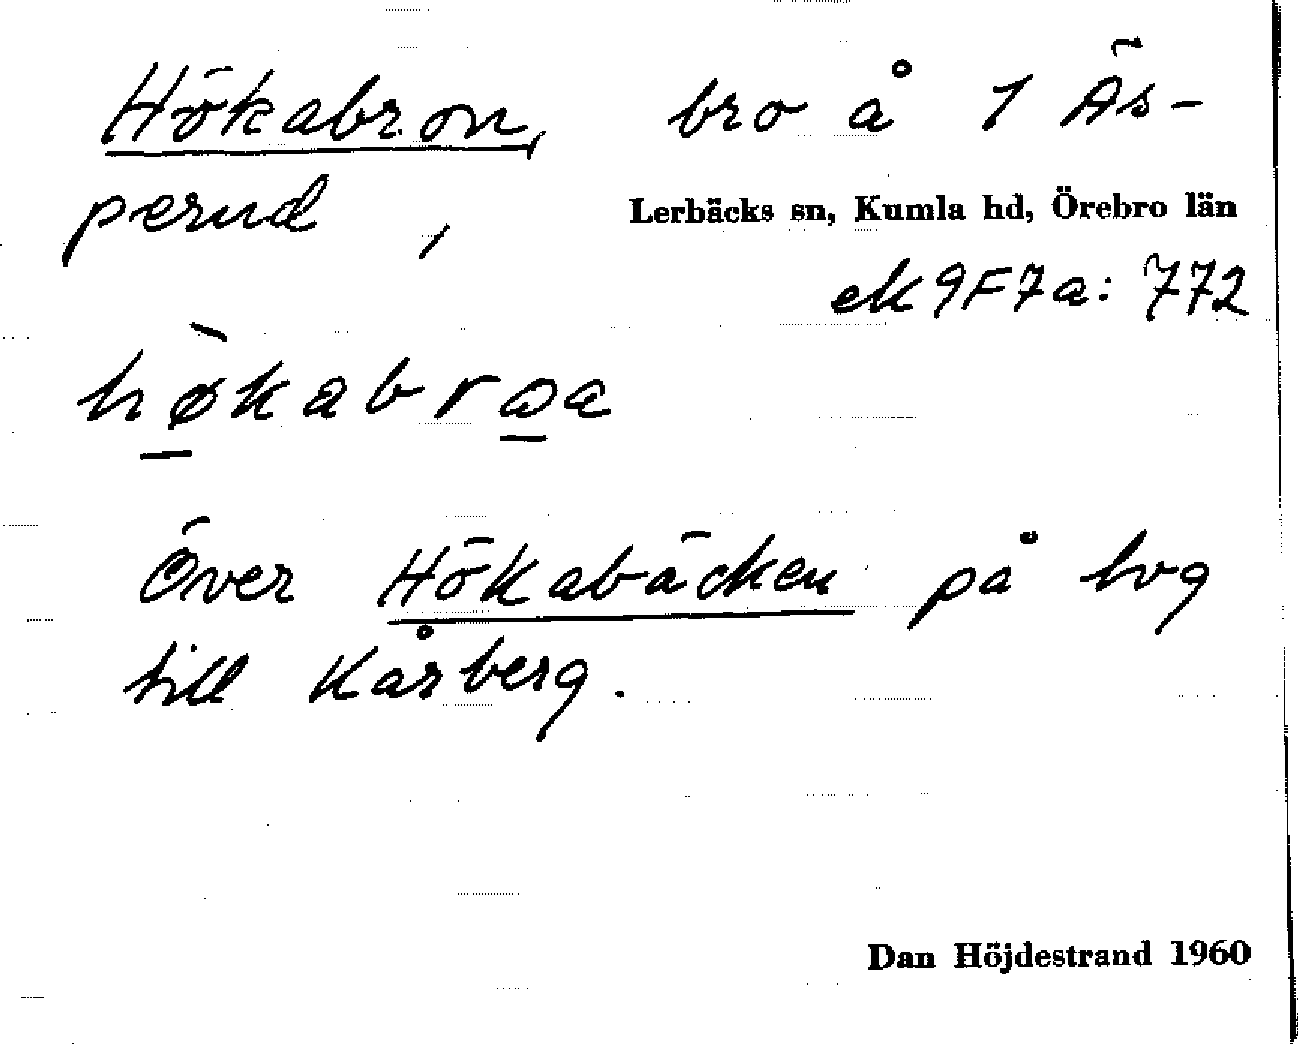 Hökabron, bro å 1 Äs-
perud,
Lerbäcks sn, Kumla hd, Örebro län
ek 9F7a: 772
hø̀kabroa
Över Hökabäcken på lvg
till Kårberg.
Dan Höjdestrand 1960